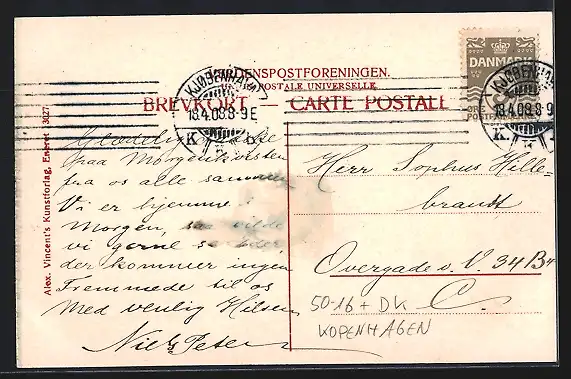 VERDENSPOSTFORENINGEN.
POSTALE UNIVERSELLE
BREVKORT – CARTE POSTALE
DANMARK
KJØBENHAVN
18.4.09.8-9E
K
KJØBENHAVN
18.4.09.8-9
K
Alex. Vincent's Kunstforlag, Eneret 3027
Glædelig
paa
fra os alle sammen
Vi er hjemme i
Morgen,
vi gerne se
der kommer ingen
Fremmede til os
Med venlig Hilsen
Niels Peter
Herr Sophus Hille-
brandt
Overgade o. V. 34 B
C.
50-16 + DK
KOPENHAGEN